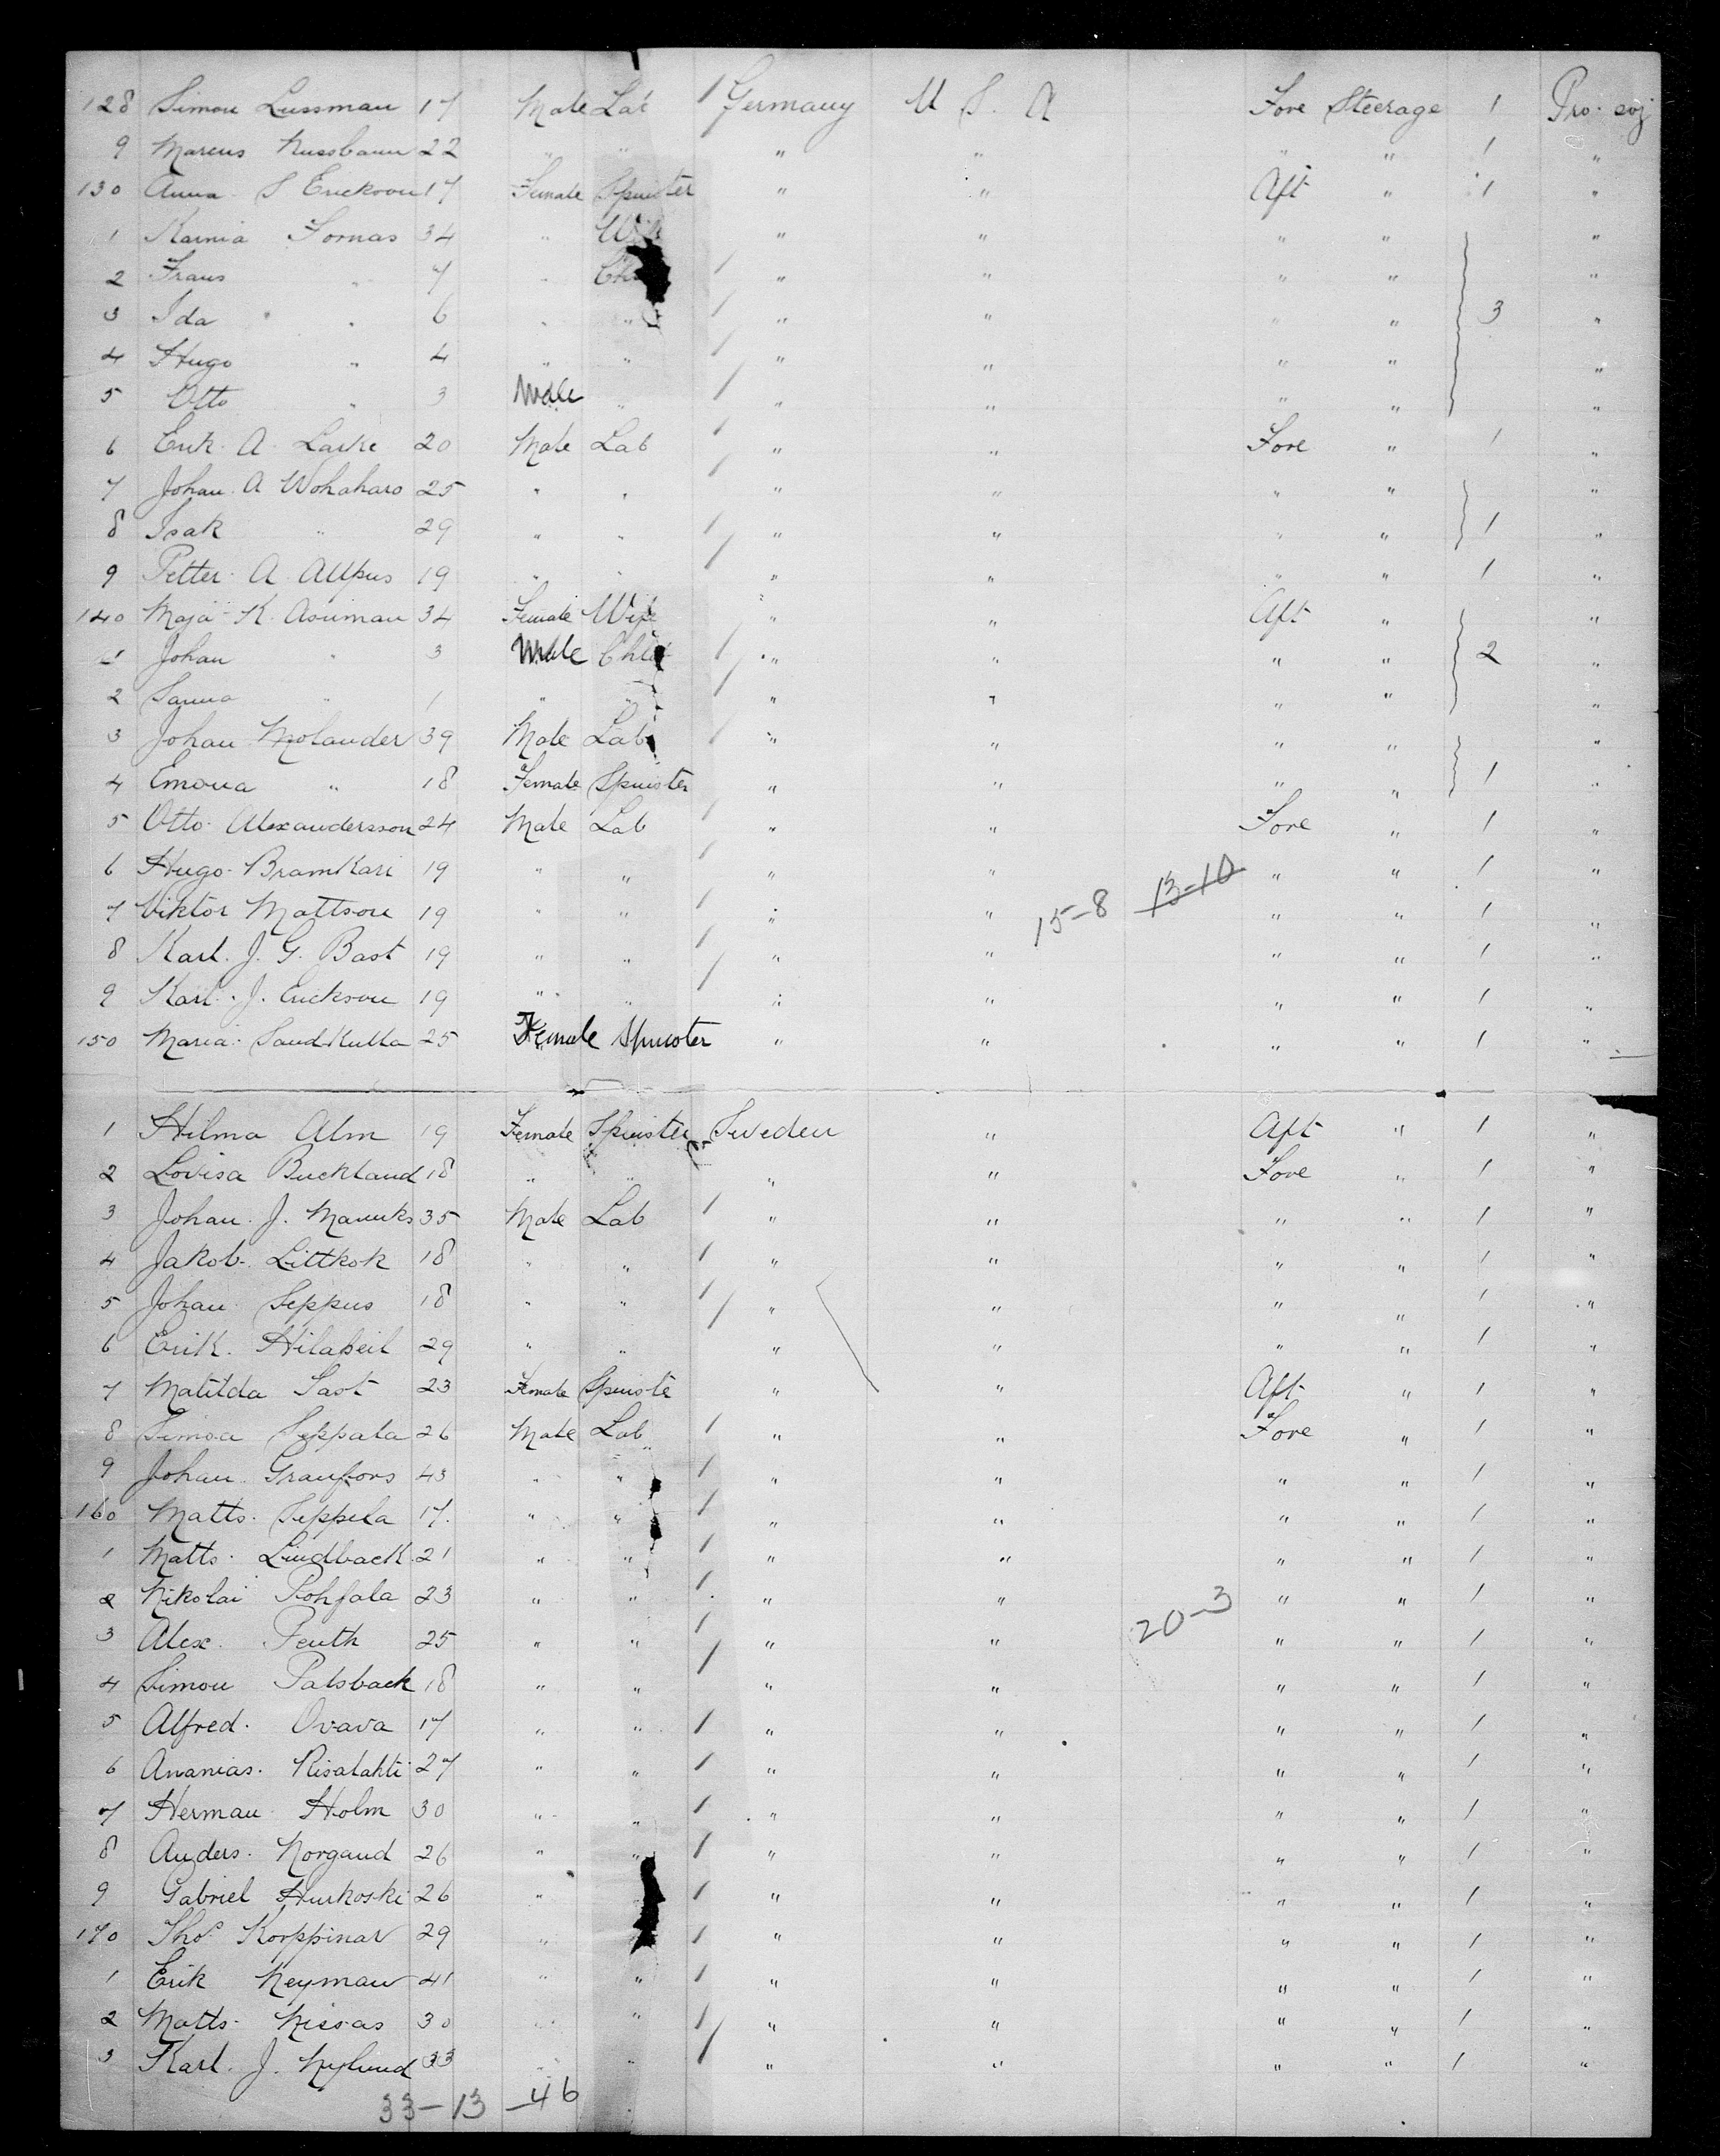 128 Simon Lussman 17 Male Lab / Germany U S. A Fore Steerage 1 Pro. soj
9 Marcus Nussbaum 22 " " " " " " 1 "
130 Anna S Erickson 17 Female Spinster " " Aft " 1 "
1 Karnia Fornas 34 " Wife " " " " "
2 Frans " 7 " Ch / " " " " "
3 Ida " 6 " " / " " " " 3 "
4 Hugo " 4 " " / " " " " "
5 Otto " 3 Male " / " " " " "
6 Erik A. Laske 20 Male Lab / " " Fore " 1 "
7 Johan A Wohaharo 25 " " / " " " " "
8 Isak " 29 " " / " " " " 1 "
9 Petter A Allpus 19 " " / " " " " 1 "
140 Maja K. Asuiman 34 Female Wife " " Aft " "
1 Johan " 3 Male Chld / " " " " 2 "
2 Sanna " 1 " " / " " " " "
3 Johan Molander 39 Male Lab / " " " " "
4 Emova " 18 Female Spinster " " " " 1 "
5 Otto Alexandersson 24 Male Lab / " " Fore " 1 "
6 Hugo Bramkari 19 " " / " " " " 1 "
15-8 13-10
7 Viktor Mattson 19 " " / " " " " 1 "
8 Karl. J. G. Bast 19 " " / " " " " 1 "
9 Karl. J. Erickson 19 " " / " " " " 1 "
150 Maria Sandkulla 25 Female Spinster " " " " 1 "
1 Hilma Alm 19 Female Spinster Sweden " Aft " 1 "
2 Lovisa Buckland 18 " " " " Fore " 1 "
3 Johan. J. Manuks 35 Male Lab / " " " " 1 "
4 Jakob Littkok 18 " " / " " " " 1 "
5 Johan Seppus 18 " " / " " " " 1 "
6 Erik. Hilabeil 29 " " " " " " 1 "
7 Matilda Sast 23 Female Spinste " " Aft " 1 "
8 Simoa Seppala 26 Male Lab / " " Fore " 1 "
9 Johan Granfors 43 " " / " " " " 1 "
160 Matts. Seppela 17. " " / " " " " 1 "
1 Matts. Lindback 21 " " / " " " " 1 "
2 Nikolai Pohjala 23 " " / " " " " 1 "
20-3
3 Alex. Penth 25 " " / " " " " 1 "
4 Simon Palsback 18 " " / " " " " 1 "
5 Alfred. Ovava 17 " " / " " " " 1 "
6 Ananias. Risalahti 27 " " / " " " " 1 "
7 Herman Holm 30 " " / " " " " 1 "
8 Anders. Norgand 26 " " / " " " " 1 "
9 Gabriel Hurkoski 26 " / " " " " 1 "
170 Thos Korppinar 29 " / " " " " 1 "
1 Erik Neyman 41 " " / " " " " 1 "
2 Matts. Nissas 30 " " / " " " " 1 "
3 Karl. J. Nylund 33 " " / " " " " 1 "
33-13-46